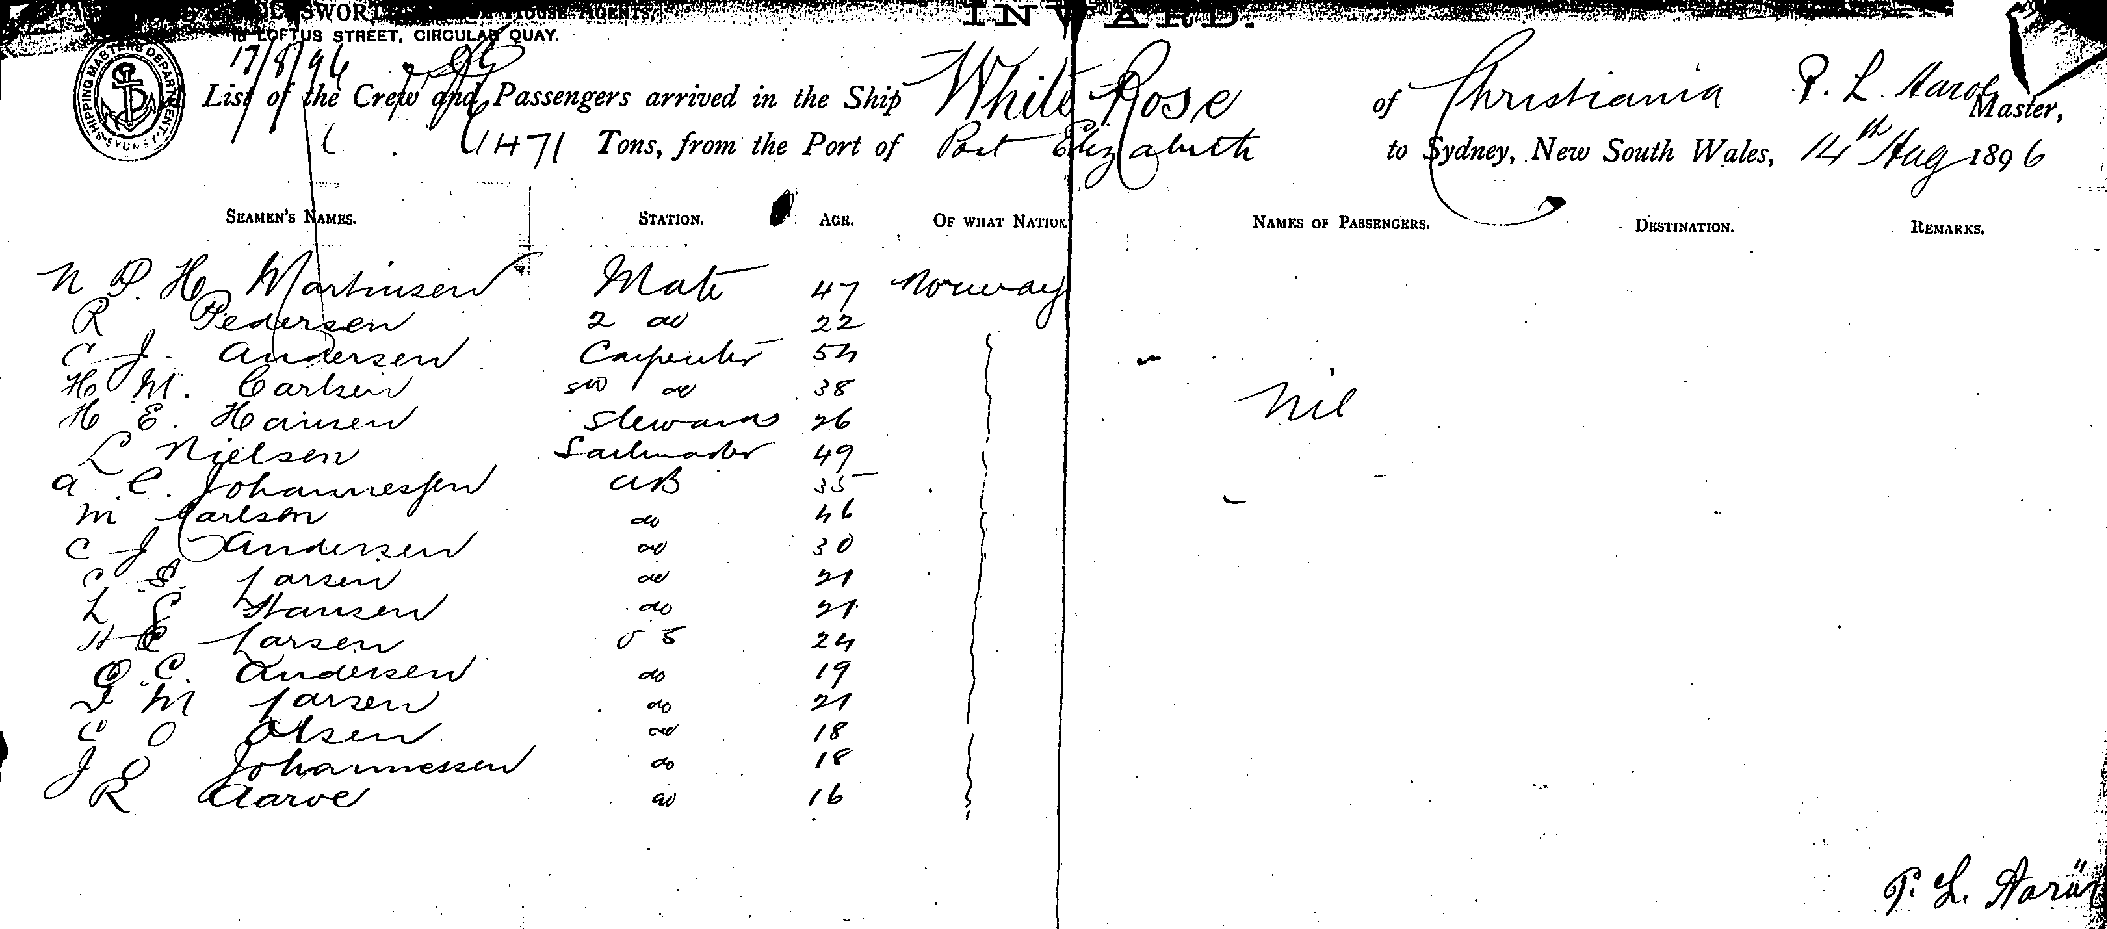 INWARD.
LOFTUS STREET, CIRCULAR QUAY.
17/8/96
SHIPPING MASTERS DEPARTMENT SYDNEY
List of the Crew and Passengers arrived in the Ship White Rose of Christiania P. L. Aaroe Master,
1471 Tons, from the Port of Port Elizabeth to Sydney, New South Wales, 14th Aug 1896
SEAMEN'S NAMES. STATION. AGE. OF WHAT NATION NAMES OF PASSENGERS. DESTINATION. REMARKS.
N P. H Martinsen Mate 47 Norway
R Pedersen 2 do 22
C J. Andersen Carpenter 54
H M. Carlsen 2nd do 38
H E. Hansen Steward 26
Nil
L Nielsen Sailmaker 49
A C. Johannessen AB 35
M Carlson do 46
C J Andersen do 30
C E. Larsen do 21
L E Hansen do 21
H C Larsen O S 24
O. C. Andersen do 19
F M Larsen do 21
C O Olsen do 18
J E Johannessen do 18
R Aaroe do 16
P. L. Aaröe